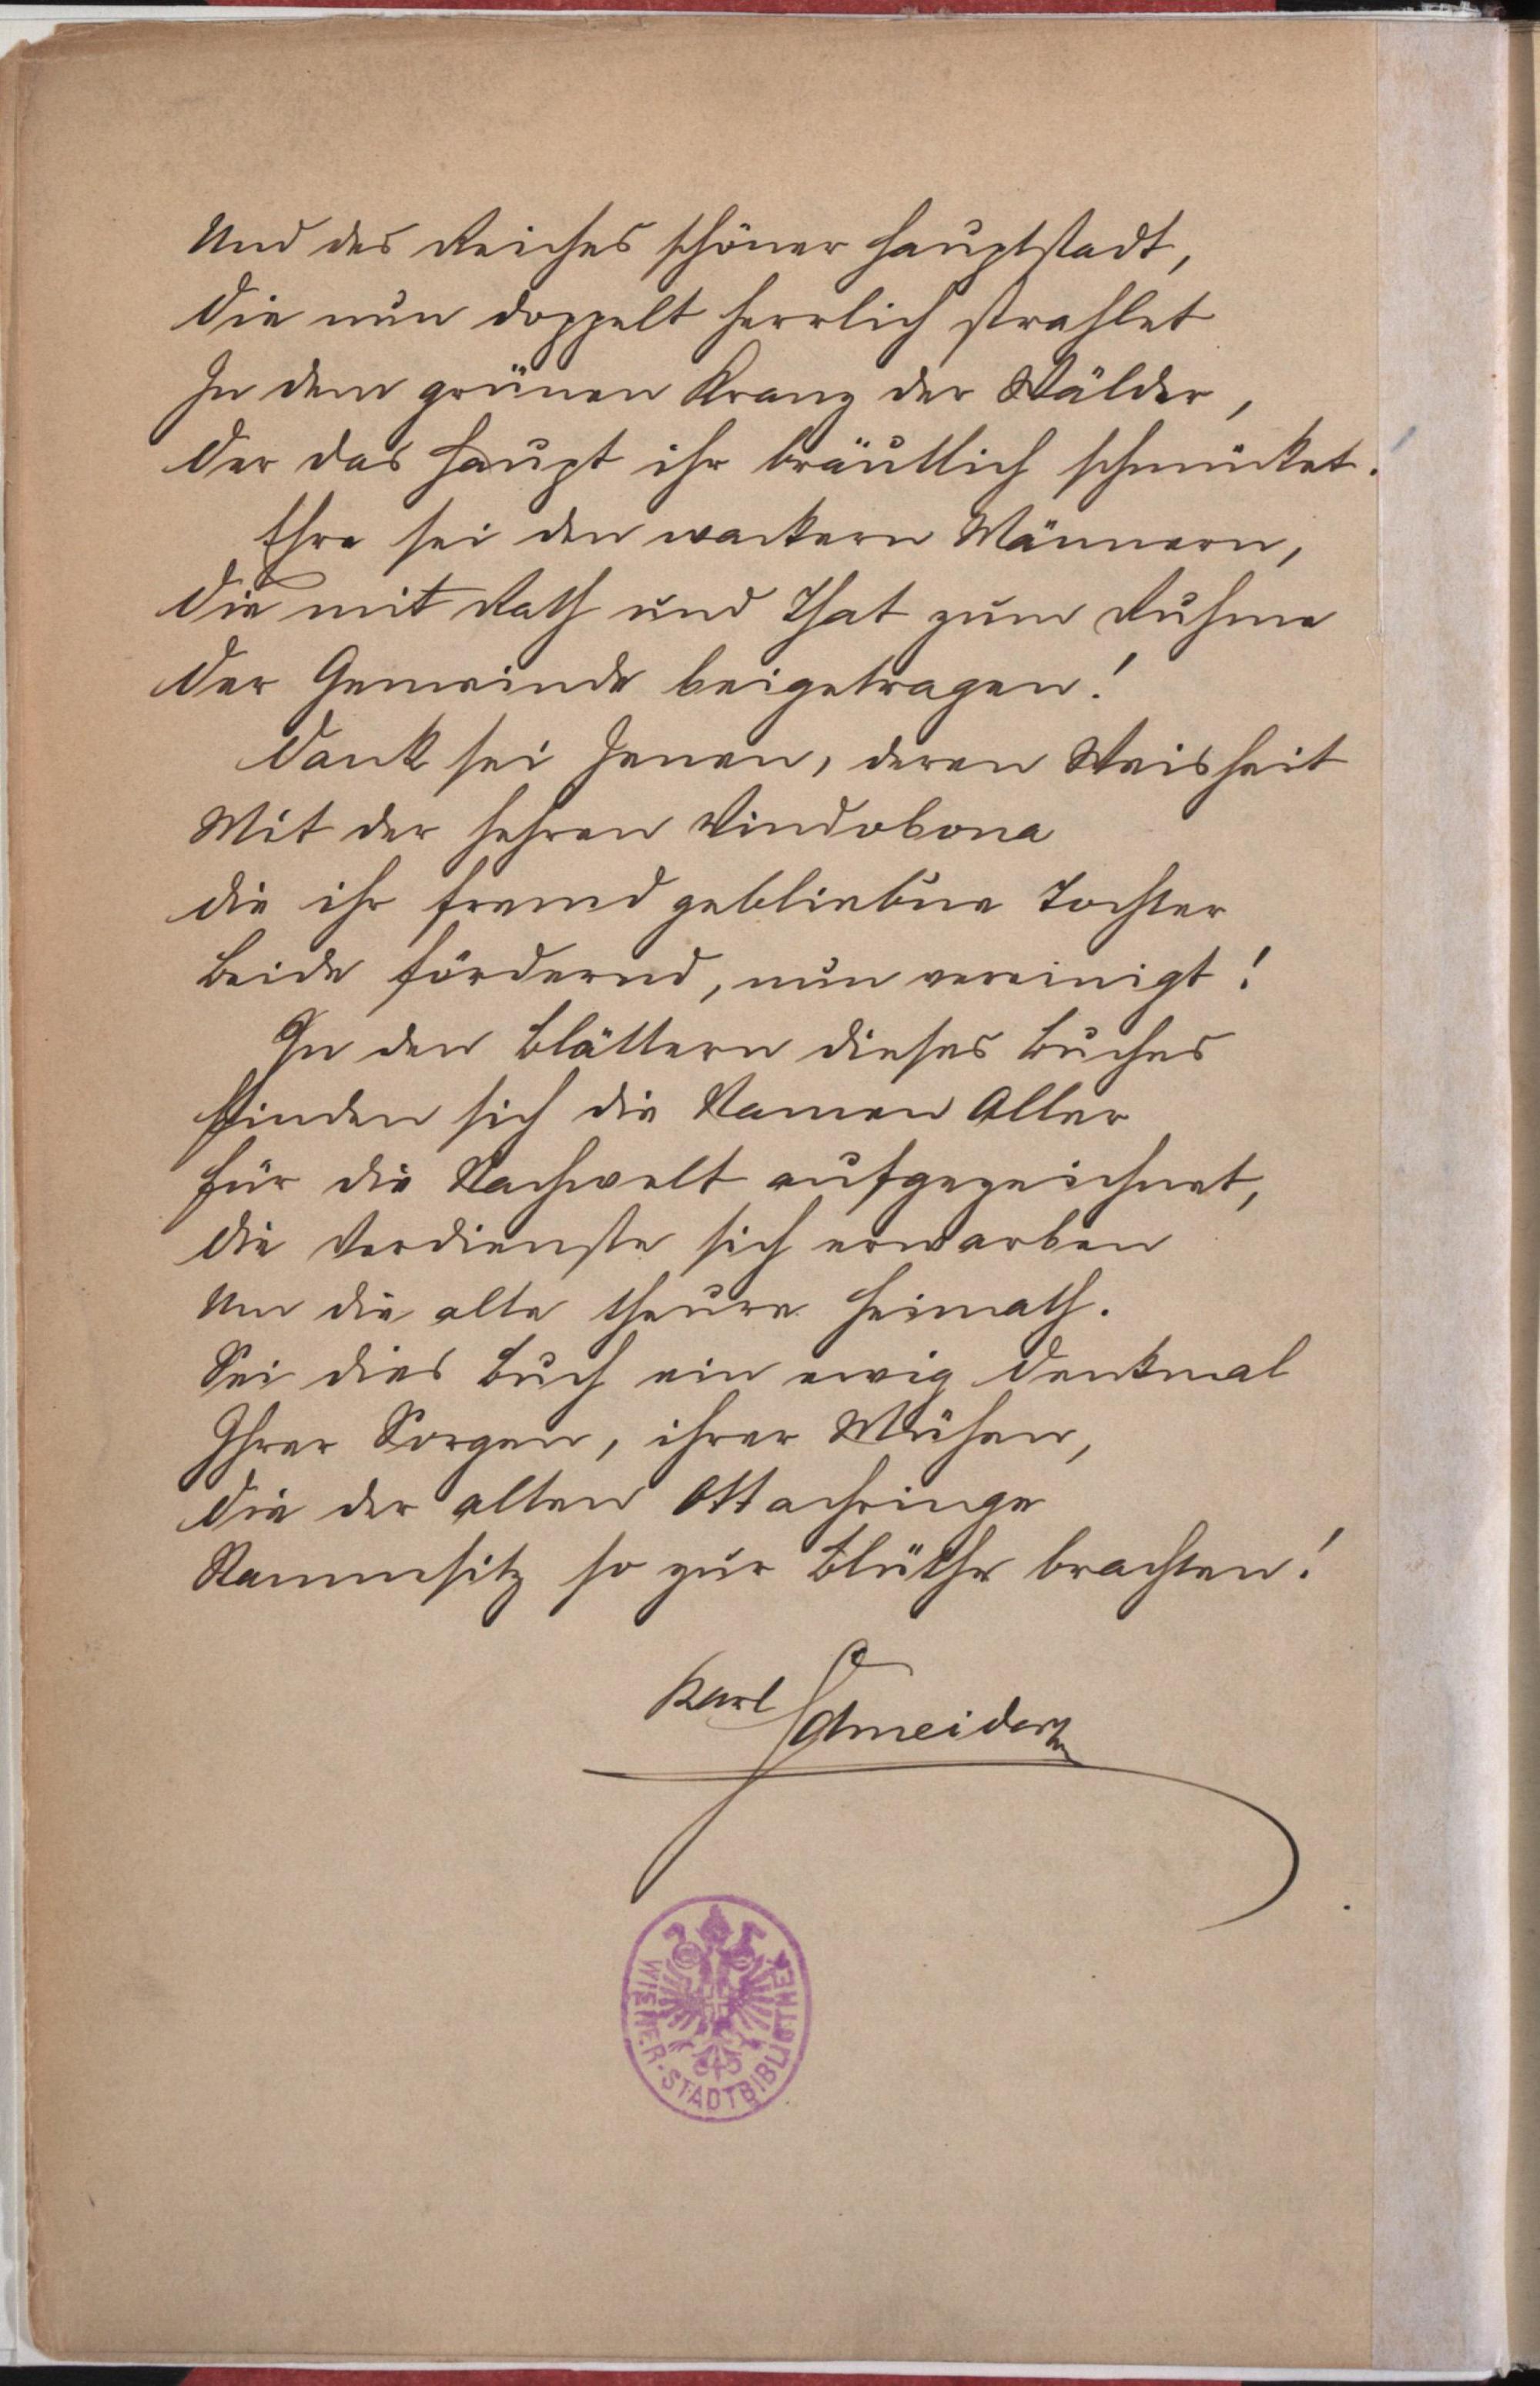 Und des Reiches schöner Hauptstadt,
Die nun doppelt herrlich strahlet
In dem grünen Kranz der Wälder,
Der das Haupt ihr bräutlich schmücket.
Ehre sei den wackern Männern,
Die mit Rath und That zum Ruhme
Der Gemeinde beigetragen!
Dank sei Jenen, deren Weisheit
Mit der hehren Vindobona
Die ihr fremd gebliebne Tochter
Beide fördernd, nun vereinigt!
In den Blättern dieses Buches
Finden sich die Namen Aller
Für die Nachwelt aufgezeichnet,
Die Verdienste sich erwarben
Um die alte theure Heimath.
Sei dies Buch ein ewig Denkmal
Ihrer Sorgen, ihrer Mühen,
Die der alten Ottachringe
Stammsitz so zur Blüthe brachten!
Karl Schneider
WIENER·STADTBIBLIOTHEK